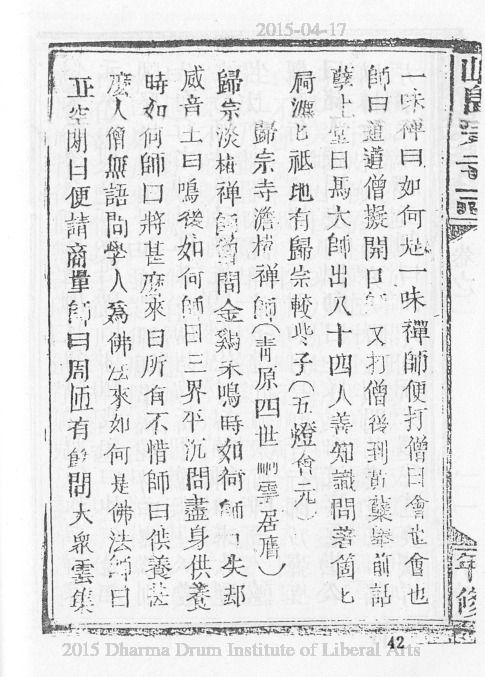 2015-04-17
一味禪曰如何是一味禪師便打僧曰會也會也
師曰道道僧擬開口師又打僧後到黃蘗舉前話
蘗上堂曰馬大師出八十四人善知識問著箇七
屙漉七祗地有歸宗較些子(五燈會元)
歸宗寺澹權禪師(青原四世嗣雲居膺)
歸宗淡權禪師曾問金鷄未鳴時如何師曰失却
威音王曰鳴後如何師曰三界平沉問盡身供養
時如何師曰將甚麼來曰所有不惜師曰供養甚
麼人僧無語問學人為佛法來如何是佛法師曰
正空閑曰便請商量師曰周匝有餘問大衆雲集
年修
42
2015 Dharma Drum Institute of Liberal Arts